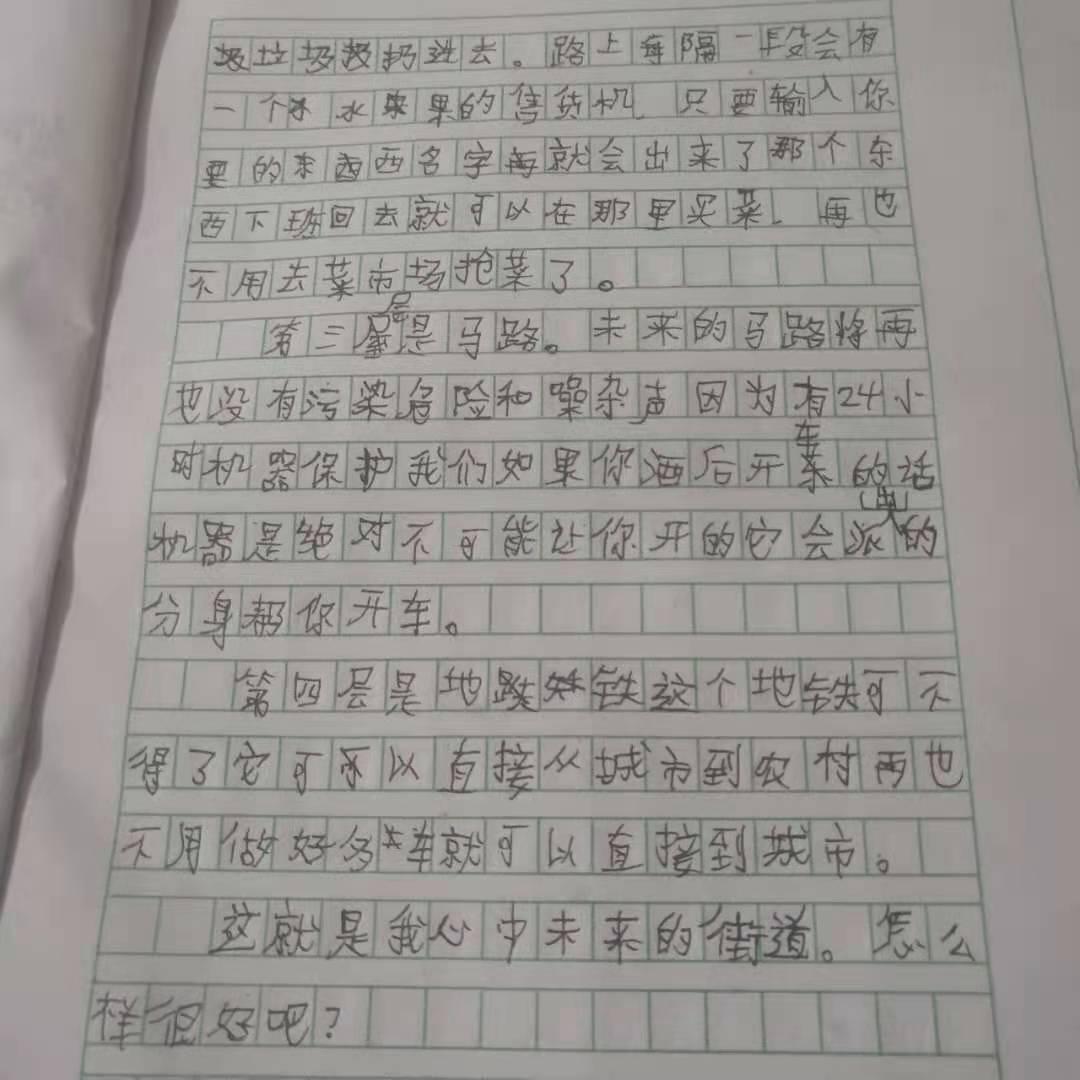 垃圾扔进去。路上每隔一段会有
一个水果的售货机，只要输入你
要的东西名字再就会出来了那个东
西下班回去就可以在那里买菜，再也
不用去菜市场抢菜了。
第三层是马路。未来的马路将再
也没有污染危险和噪杂声因为有24小
时机器保护我们如果你酒后开车的话
机器是绝对不可能让你开的它会派它的
分身帮你开车。
第四层是地铁这个地铁可不
得了它可以直接从城市到农村再也
不用做好多车就可以直接到城市。
这就是我心中未来的街道。怎么
样很好吧？